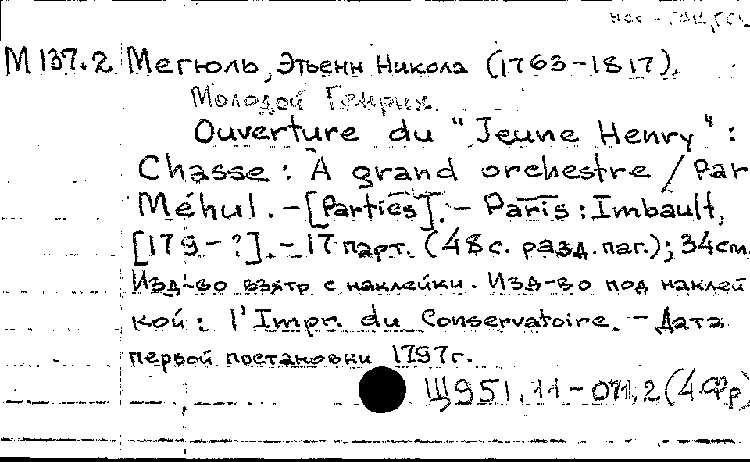 М 137.2 Мегюль, Этьенн Никола (1763-1817).
Молодой Генрих.
Ouverture du "Jeune Henry" :
Chasse : À grand orchestre / Par
Méhul. – [Parties]. – Paris : Imbault,
[179-?]. – 17 парт. (48с. разд. паг.); 34cm.
Изд-во взято с наклейки. Изд-во под наклей
кой : l'Impr. du Conservatoire. – Дата
первой постановки 1797г.
Щ951.11-071.2(4Фр)